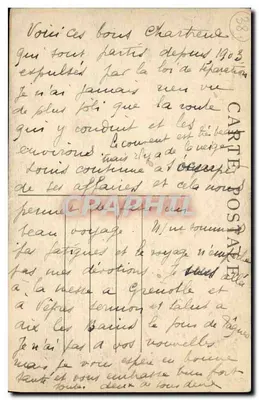 38
Voici ces bons Chartreux
qui sont partis depuis 1903
expulsés par la loi de séparation
Je n'ai jamais rien vu
de plus joli que la route
qui y conduit et les
environs le couvent est très beau
mais il y a de la neige
Louis continue à s'occuper
de ses affaires et cela nous
permet de faire un
beau voyage. Nous ne sommes
pas fatigués et le voyage n'empêche
pas mes dévotions. Je suis allée
à la messe à Grenoble et
à Vêpres sermon et salut à
Aix les Bains le jour de Pâques
Je n'ai pas de vos nouvelles
mais je vous espère en bonne
santé et vous embrasse bien fort
tous deux
CARTE POSTALE
CPAPHIL